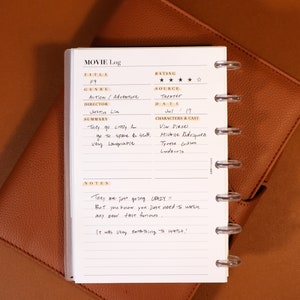 MOVIE Log
TITLE
F9
RATING
★ ★ ★ ★ ☆
GENRE
Action / Adventure
SOURCE
Theater
DIRECTOR
Justin Lin
DATE
Jul / 19
SUMMARY
They go crazy &
go to space & stuff.
Very
CHARACTERS & CAST
Vin Diesel
Michelle Rodriguez
Tyrese Gibson
Ludacris
NOTES
They are just going CRAZY!!
But you know you just need to watch
any new fast furious.
It was very something to watch!